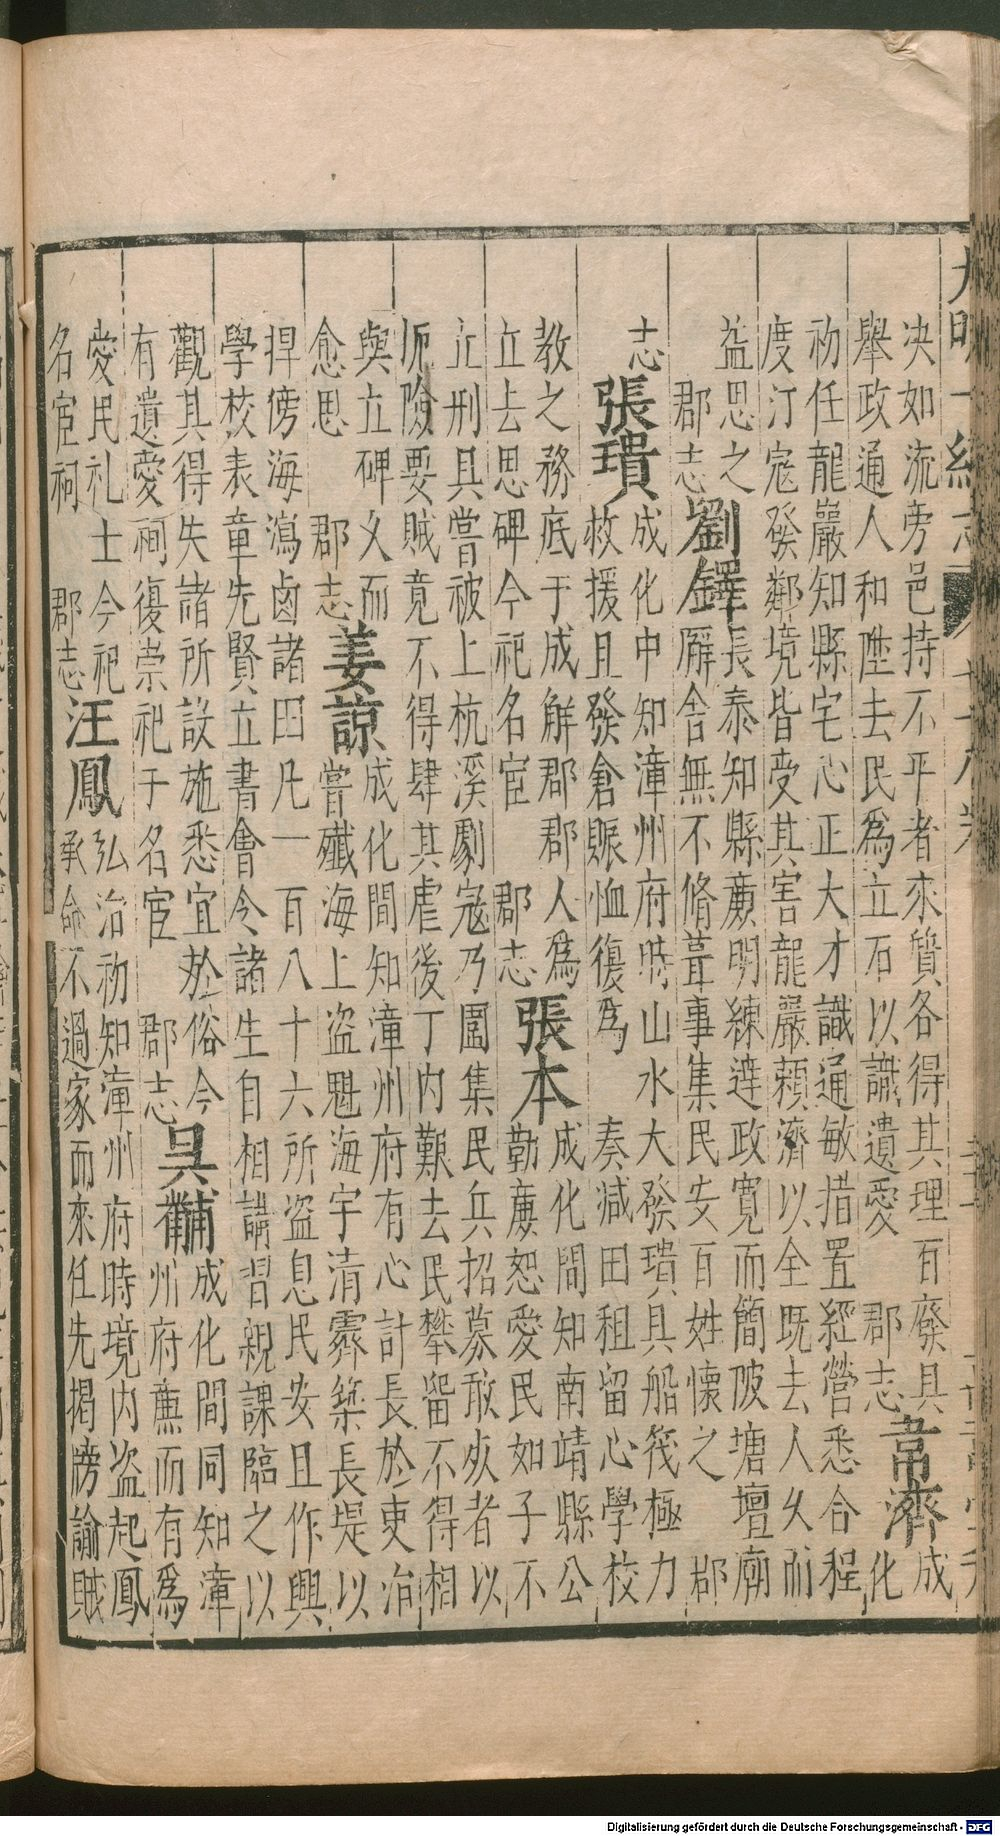 大明一統志
決如流旁邑持不平者來質各得其理百廢具
舉政通人和陞去民為立石以識遺愛 郡志
韋濟
成
化
初任龍巖知縣宅心正大才識通敏措置經營悉合程
度汀寇發鄰境皆受其害龍巖賴濟以全既去人久而
益思之
郡志
劉鐸
長泰知縣廉明練達政寬而簡陂塘壇廟
廨舍無不脩葺事集民安百姓懷之 郡
志
張璝
成化中知漳州府時山水大發璝具船筏極力
救援且發倉賑恤復為 奏減田租留心學校
教之務底于成解郡郡人為
立去思碑今祀名宦 郡志
張本
成化間知南靖縣公
勤廉恕愛民如子不
立刑具嘗被上杭溪劇寇乃圍集民兵招募敢死者以
扼險要賊竟不得肆其虐後丁內艱去民攀留不得相
與立碑久而
愈思 郡志
姜諒
成化間知漳州府有心計長於吏治
嘗殲海上盜魁海宇清霽築長堤以
捍傍海瀉鹵諸田凡一百八十六所盜息民安且作興
學校表章先賢立書會令諸生自相講習親課臨之以
觀其得失諸所設施悉宜於俗今
有遺愛祠復崇祀于名宦 郡志
吳黼
成化間同知漳
州府廉而有為
愛民礼士今祀
名宦祠 郡志
汪鳳
弘治初知漳州府時境內盜起鳳
承命不過家而來任先揭牓諭賊
Digitalisierung gefördert durch die Deutsche Forschungsgemeinschaft - DFG